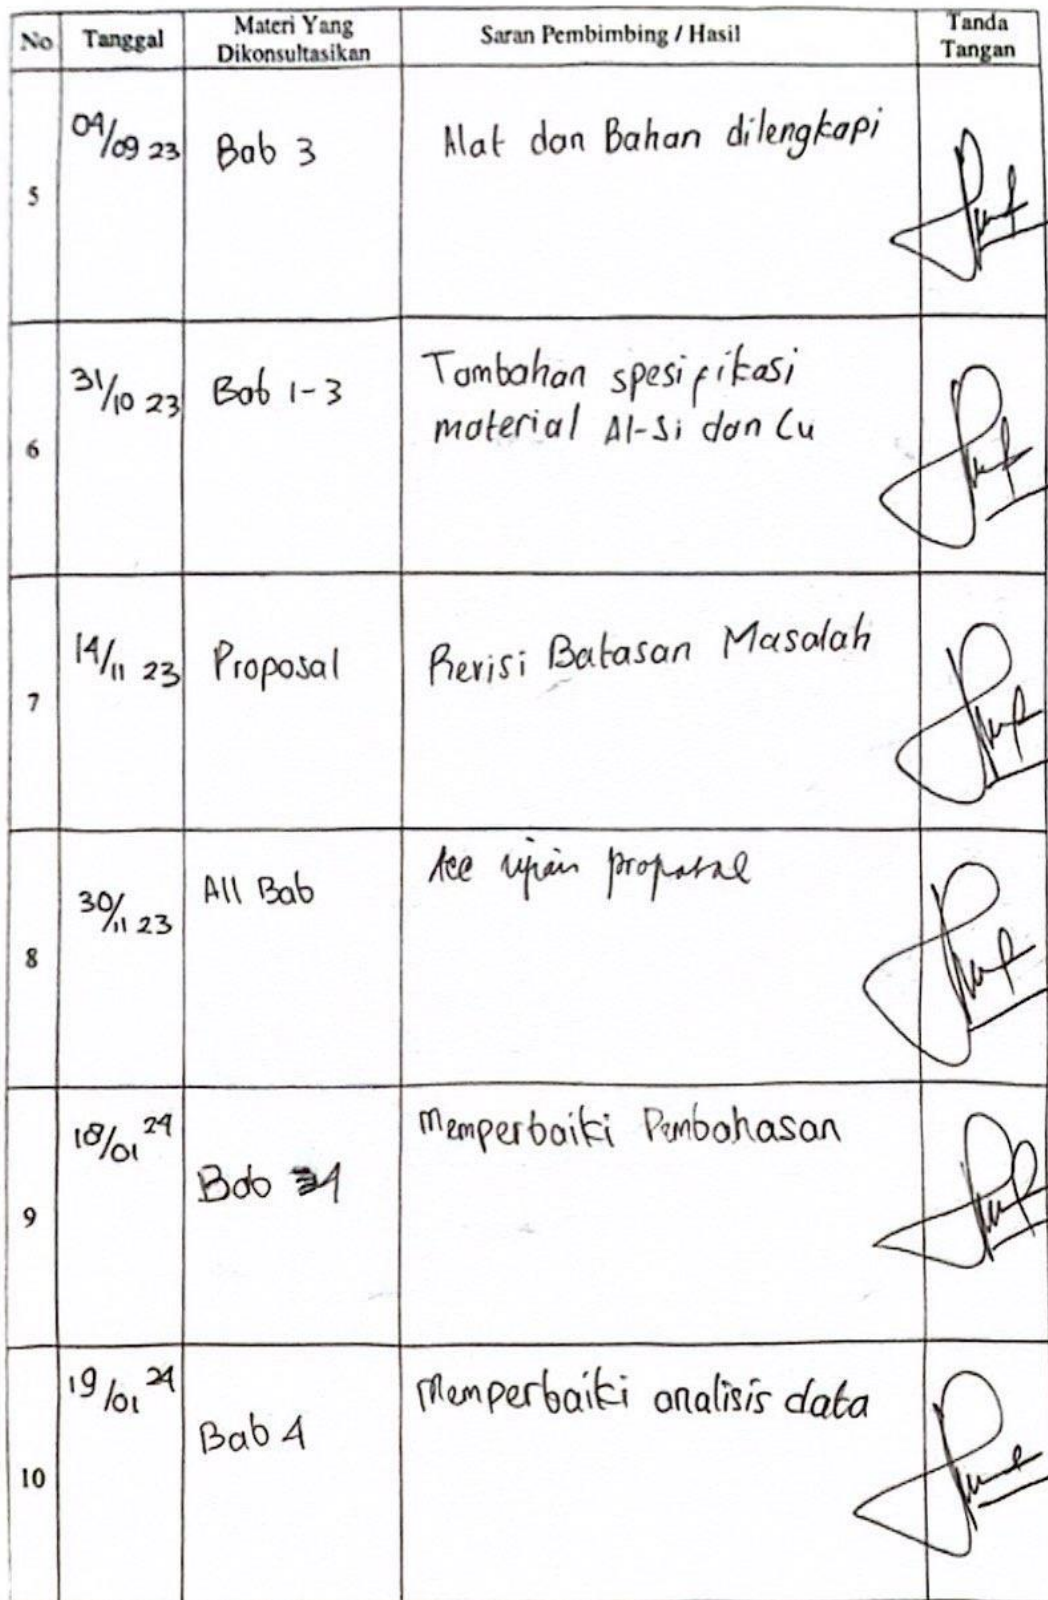 No Tanggal Materi Yang Dikonsultasikan Saran Pembimbing / Hasil Tanda Tangan
5 04/09 23 Bab 3 Alat dan Bahan dilengkapi
6 31/10 23 Bab 1-3 Tambahan spesifikasi
material Al-Si dan Cu
7 14/11 23 Proposal Revisi Batasan Masalah
8 30/11 23 All Bab Acc ujian proposal
9 18/01 24 Bab 4 Memperbaiki Pembahasan
10 19/01 24 Bab 4 Memperbaiki analisis data